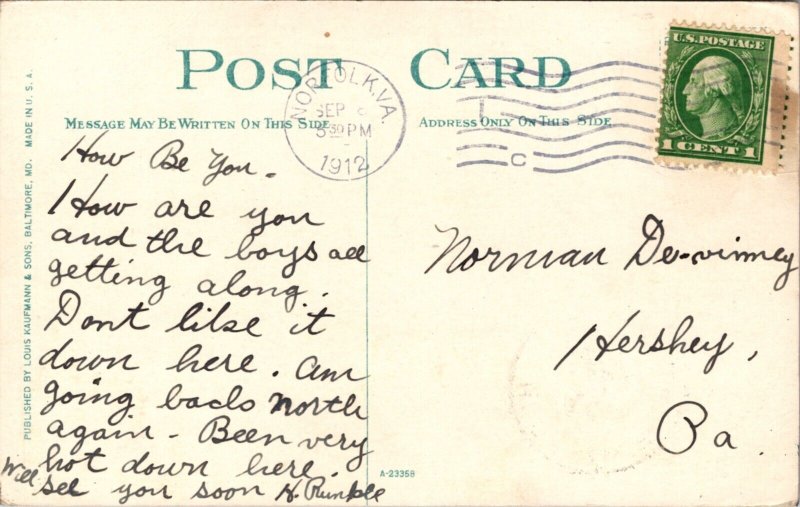 POST CARD
MESSAGE MAY BE WRITTEN ON THIS SIDE
ADDRESS ONLY ON THIS SIDE
NORFOLK, VA.
SEP
30 PM
1912
C
U.S. POSTAGE
1 CENT 1
PUBLISHED BY LOUIS KAUFMANN & SONS, BALTIMORE, MD. MADE IN U. S. A.
How Be You.
How are you
and the boys all
getting along.
Dont like it
down here. am
going back North
again - Been very
hot down here.
Will see you soon H. Runkle
Norman De-vinney
Hershey,
Pa.
A-23358